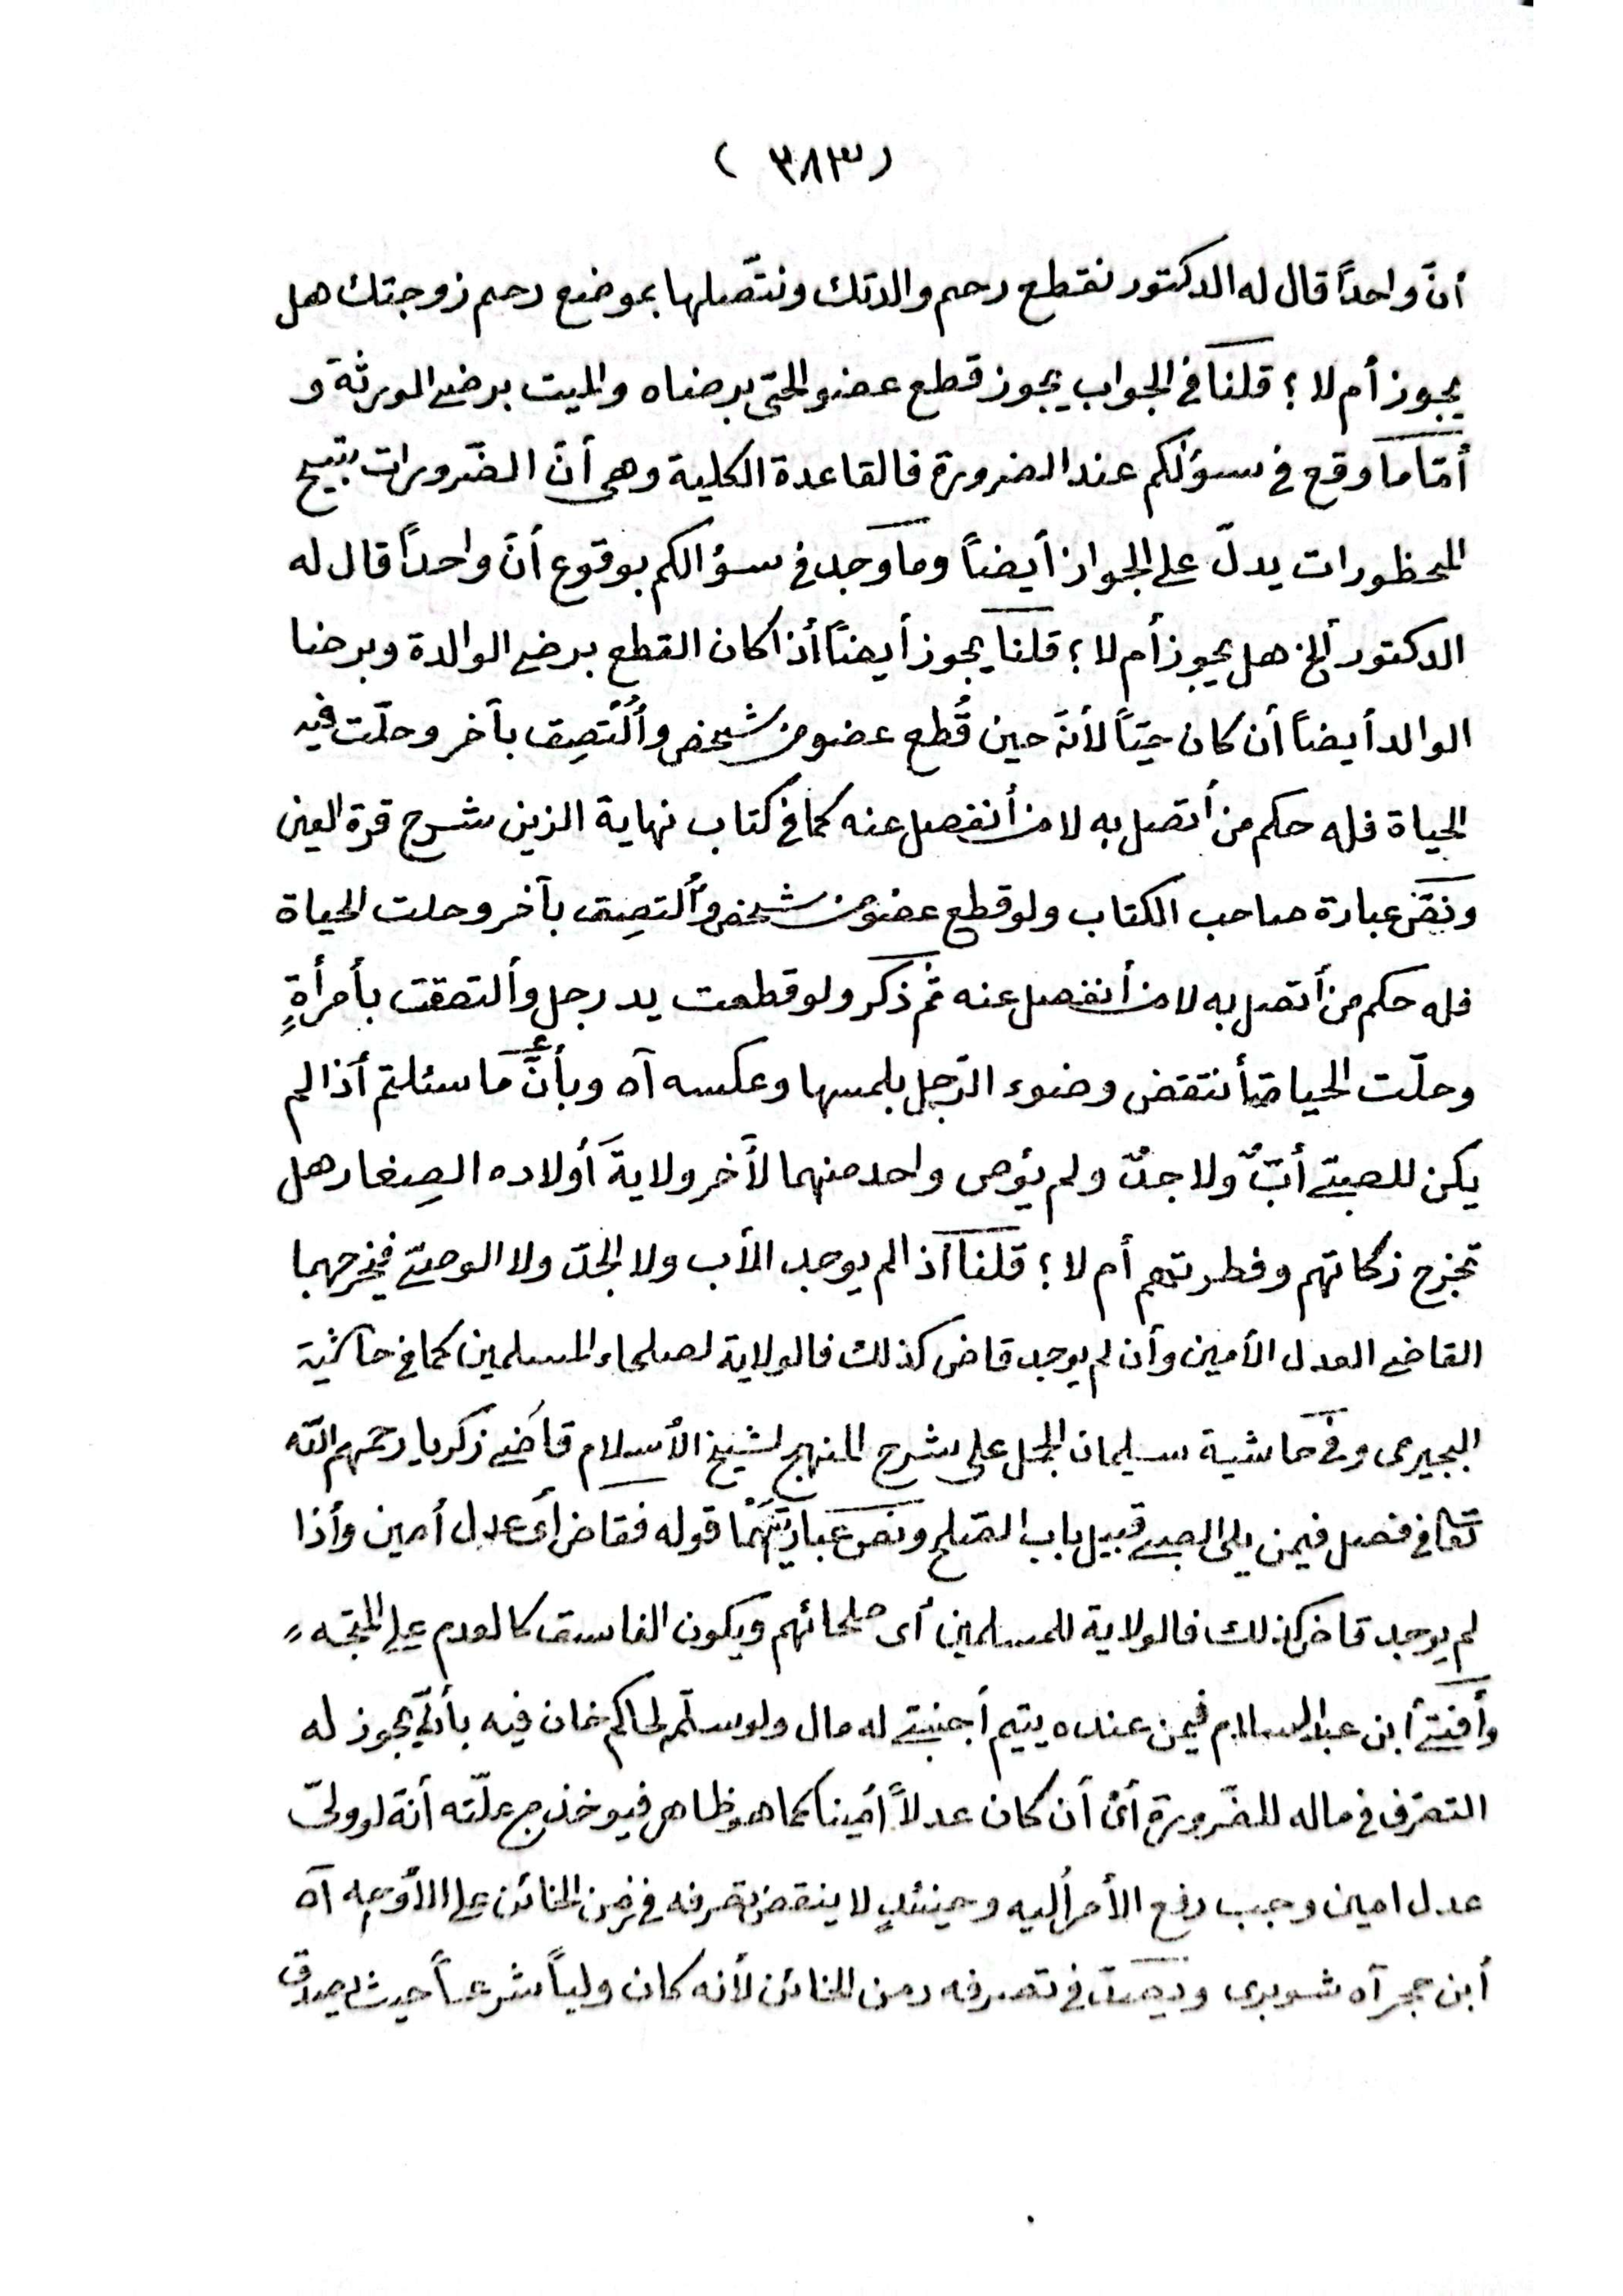 (٣٨٣)
أنّ واحداً قال له الدكتور نقطع رحم والدتك ونتّصلها بموضع رحم زوجتك هل
يجوز أم لا ؟ قلنا فى الجواب يجوز قطع عضو الحىّ برضاه والميت برضى الورثة و
أمّا ما وقع فى سؤلكم عند الضرورة فالقاعدة الكلية وهى أنّ الضّرورات تبيح
المحظورات يدلّ على الجواز أيضاً وما وجد فى سؤالكم بوقوع أنّ واحداً قال له
الدكتور ألخ هل يجوز أم لا ؟ قلنا يجوز أيضاً أذا كان القطع برضى الوالدة وبرضا
الوالد أيضاً أن كان حيّاً لأنّه حين قُطع عضو من شخص وأُلتُصِق بآخر وحلّت فيه
الحياة فله حكم من أتصل به لا من أنفصل عنه كما فى كتاب نهاية الزين شرح قرة العين
ونصّ عبارة صاحب الكتاب ولو قطع عضو من شخص وألتصِق بآخر وحلت الحياة
فله حكم من أتصل به لا من أنفصل عنه ثم ذكر ولو قطعت يد رجل وألتصقت بأمرأةٍ
وحلّت الحياة أنتقض وضوء الرّجل بلمسها وعكسه آه وبأنّ ما سئلتم أذا لم
يكن للصبىّ أبٌ ولا جدٌ ولم يُوص واحد منهما لآخر ولايةَ أولاده الصِغار هل
تخرج زكاتهم وفطرتهم أم لا ؟ قلنا أذا لم يوجد الأب ولا الجدّ ولا الوصىّ فيخرجهما
القاضى العدل الأمين وأن لم يوجد قاض كذلك فالولاية لصلحاء المسلمين كما فى حاشية
البجيرمى وفى حاشية سليمان الجمل على شرح المنهج لشيخ الأسلام قاضى زكريا رحمهم الله
تعالى فى فصل فيمن يلى الصبى قبيل باب الصّلح ونصّ عبارتهما قوله فقاض أى عدل أمين وأذا
لم يوجد قاض كذلك فالولاية للمسلمين أى صلحائهم ويكون الفاسق كالعدم على المتّجه
وأفتى أبن عبد السلام فيمن عنده يتيم أجنبىّ له مال ولو سلّم لحاكم خان فيه بأنّه يجوز له
التصّرف فى ماله للضّرورة أى أن كان عدلاً أمينا كما هو ظاهر فيوخذ من علّته أنّه لو ولىّ
عدل امين وجب دفع الأمر أليه وحينئذٍ لا ينقض تصرفه فى زمن الخائن على الأوجه آه
أبن حجر آه شوبرى ويصدّق فى تصرفه زمن الخائن لأنه كان ولياً شرعاً حيث يصدق